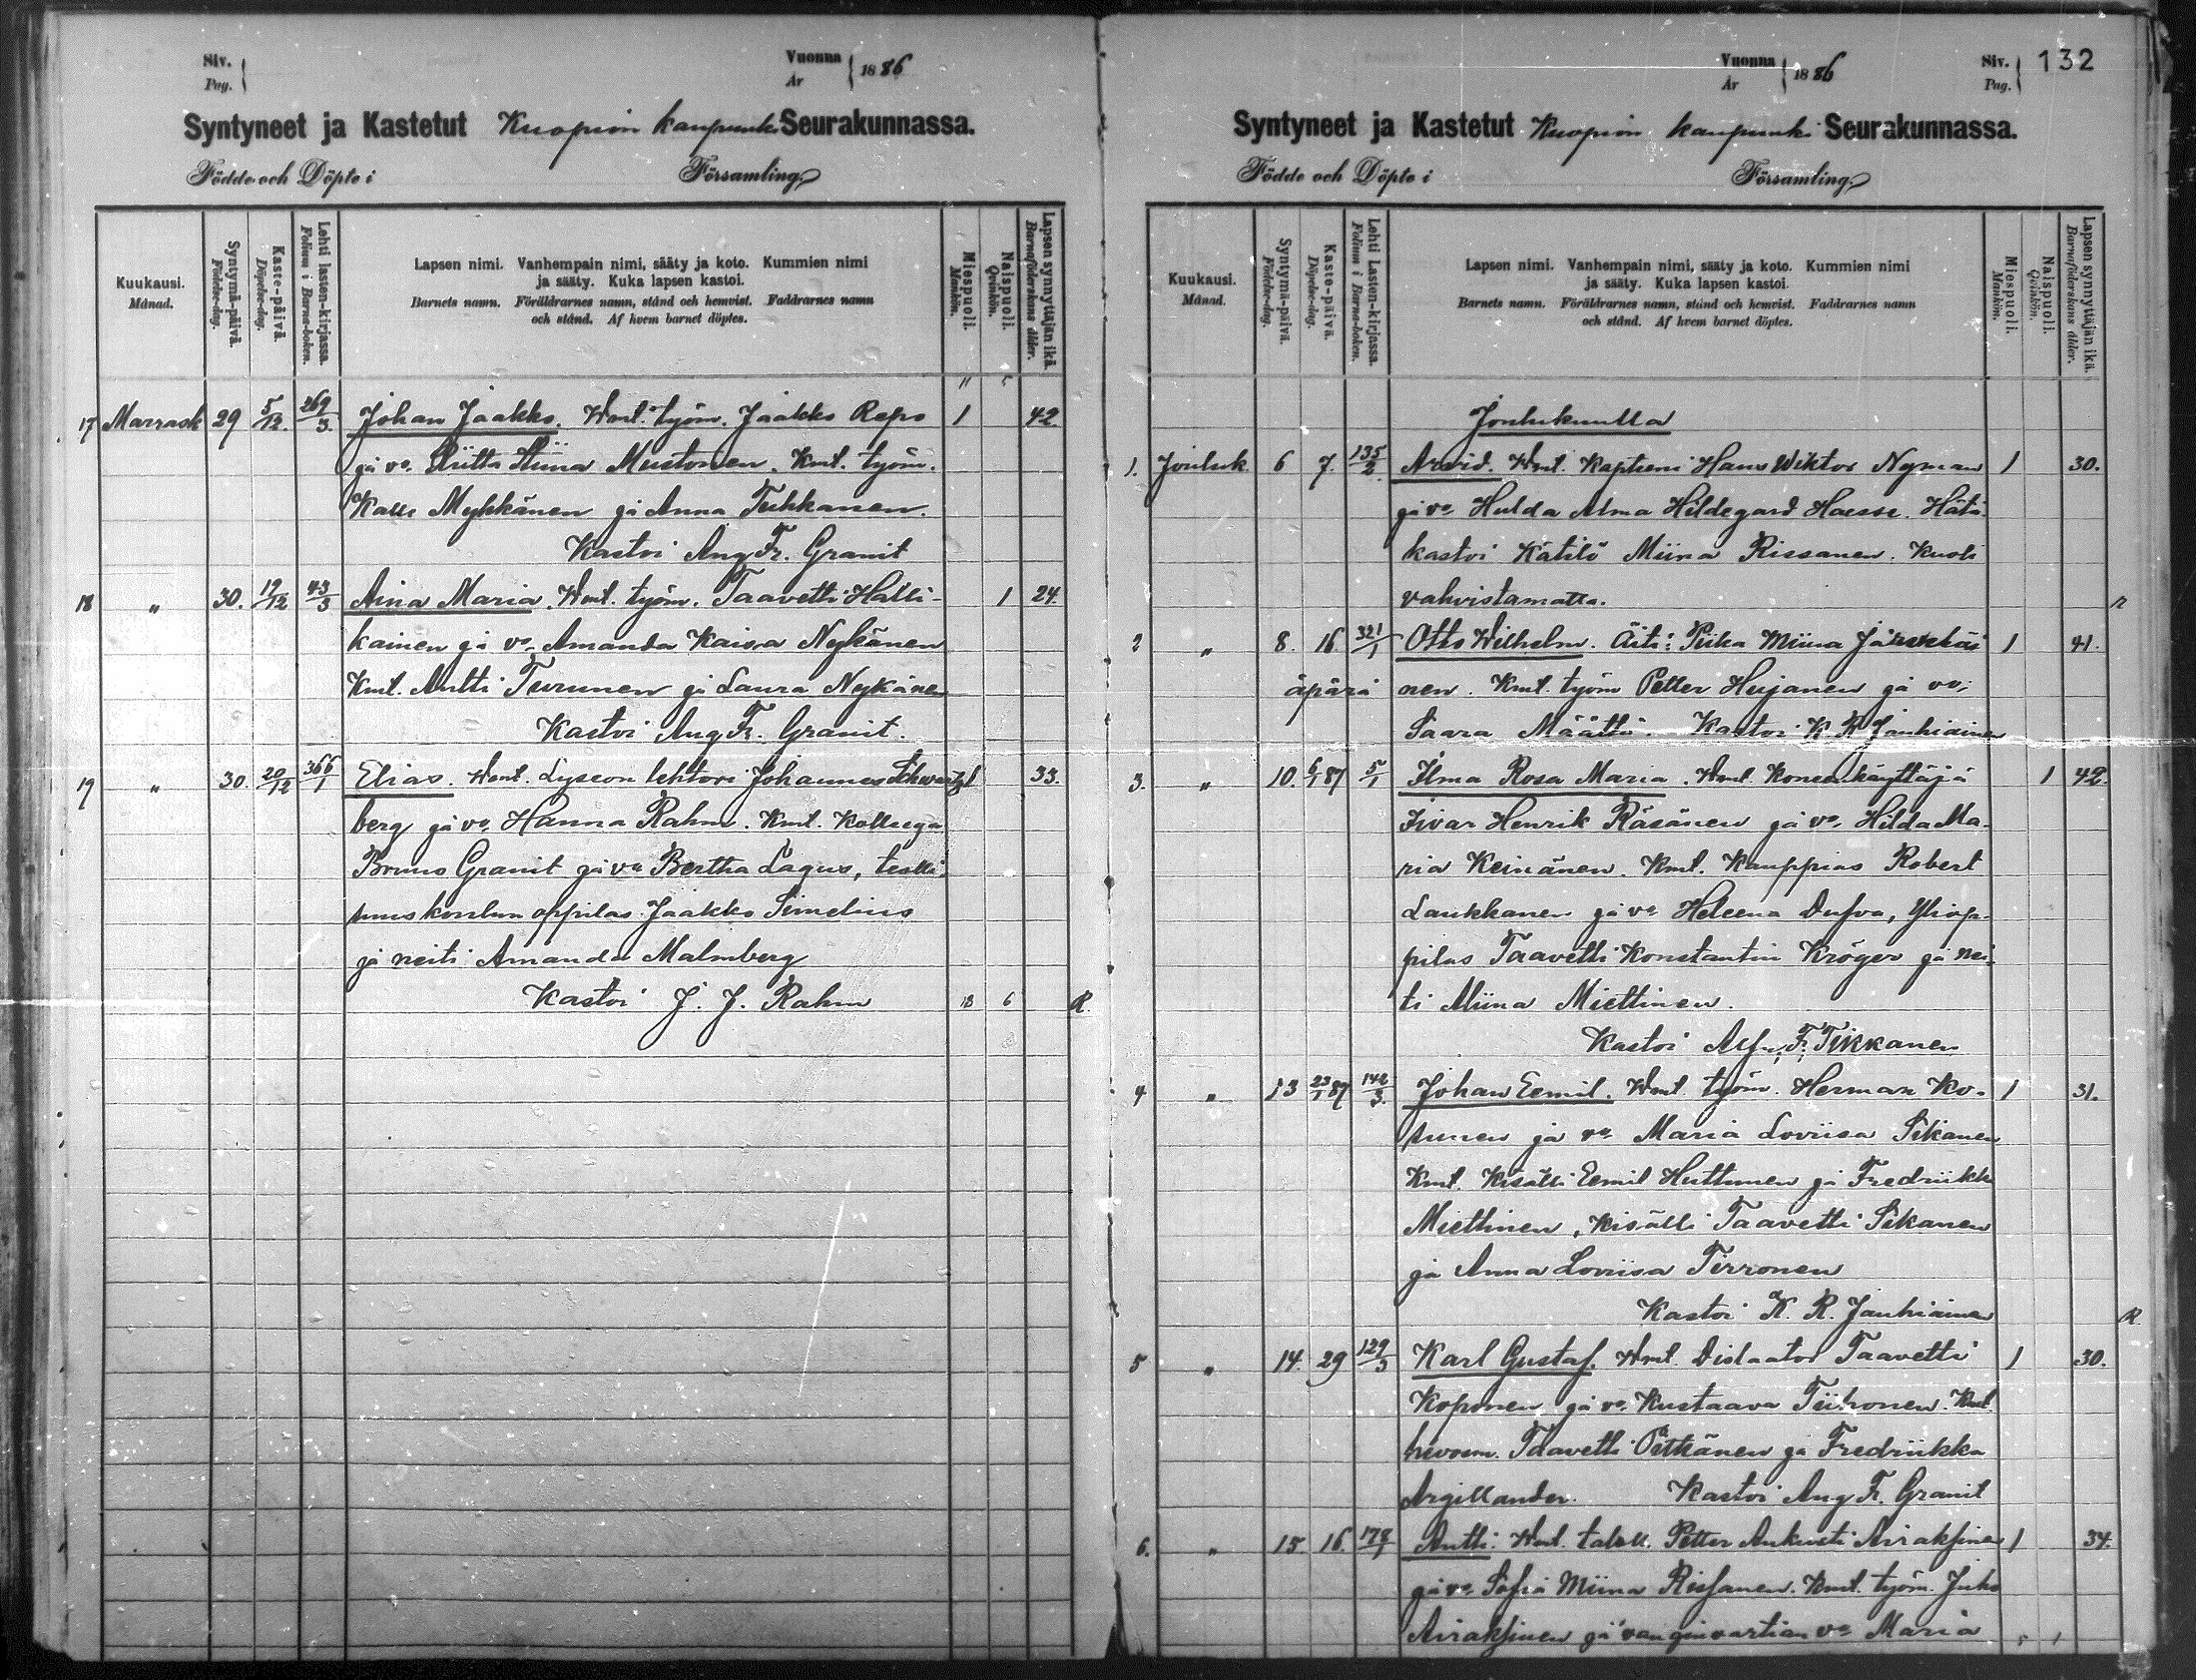 Siv.
Pag.
Vuonna
År
1886
Syntyneet ja Kastetut Kuopion kaupunki Seurakunnassa.
Födde och Döpte i Församling
Kuukausi.
Månad.
Syntymä-päivä.
Födelse-dag.
Kaste-päivä.
Döpelse-dag.
Lehti lasten-kirjassa.
Folium i Barna-boken.
Lapsen nimi. Vanhempain nimi, sääty ja koto. Kummien nimi
ja sääty. Kuka lapsen kastoi.
Barnets namn. Föräldrarnes namn, stånd och hemvist. Faddrarnes namn
och stånd. Af hvem barnet döptes.
Miespuoli.
Mankön.
Naispuoli.
Qvinkön.
Lapsen synnyttäjän ikä.
Barnaföderskans ålder.
17 Marrask 29 5/12. 269/3. Johan Jaakko. Wmt. työm. Jaakko Repo 1 42.
ja vo. Miina Mustonen. Kmt. työm.
Kalle Mykkänen ja Anna Tuhkanen.
Kastoi Aug. Fr. Granit
18 " 30. 19/12 43/3 Aina Maria. Wmt. työm. Taavetti Halli- 1 24.
kainen ja vo. Amanda Kaisa Nykänen
Kmt. Antti Turunen ja Laura Nykänen
Kastoi Aug. Fr. Granit.
19 " 30. 20/12 366/1 Elias. Wmt. Lyseon lehtori Johannes Schwartz 1 33.
berg ja vo. Hanna Rahm. Kmt. Kolleega
Bruno Granit ja vo Bertha Lagus, teolli-
suuskoulun oppilas Jaakko Simelius
ja neiti Amanda Malmberg
Kastoi J. J. Rahm 13 6 R.
Vuonna
År
1886
Siv.
Pag.
132
Syntyneet ja Kastetut Kuopion kaupunki Seurakunnassa.
Födde och Döpte i Församling
Kuukausi.
Månad.
Syntymä-päivä.
Födelse-dag.
Kaste-päivä.
Döpelse-dag.
Lehti Lasten-kirjassa.
Folium i Barna-boken.
Lapsen nimi. Vanhempain nimi, sääty ja koto. Kummien nimi
ja sääty. Kuka lapsen kastoi.
Barnets namn. Föräldrarnes namn, stånd och hemvist. Faddrarnes namn
och stånd. Af hvem barnet döptes.
Miespuoli.
Mankön.
Naispuoli.
Qvinkön.
Lapsen synnyttäjän ikä.
Barnaföderskans ålder.
Joulukuulla
1. Jouluk. 6 7. 135/2. Arvid. Wmt. Kapteni Hans Wiktor Nyman 1 30.
ja vo. Hulda Alma Hildegard Haesse. Hätä-
kastoi Kätilö Miina Rissanen. Kuoli
vahvistamatta.
2 " 8. 16 321/1 Otto Wilhelm. Äiti: Piika Miina Jääskeläi 1 41.
äpärä nen. Kmt. työm Petter Heijanen ja vo.
Saara Määttä. Kastoi K. R. Jauhiainen
3. " 10. 6/1 87 5/1 Ilma Rosa Maria. Wmt. Koneenkäyttäjä 1 42.
Iivar Henrik Räsänen ja vo. Hilda Ma-
ria Keinänen. Kmt. Kauppias Robert
Laukkanen ja vo Heleena Dufva, Yliop-
pilas Taavetti Konstantin Kröger ja nei-
ti Miina Miettinen.
Kastoi Alfr. F. Tikkanen
4 " 13 23/1 87 142/3. Johan Eemil. Wmt. työm. Herman Ko- 1 31.
sunen ja vo Maria Loviisa Sikanen
Kmt. Kisälli Eemil Huttunen ja Fredriikka
Miettinen, Kisälli Taavetti Sikanen
ja Anna Loviisa Tirronen
Kastoi K. R. Jauhiainen R
5 " 14. 29 129/3 Karl Gustaf. Wmt. Taavetti 1 30.
Koponen ja vo. Kustaava Tiihonen. Kmt.
hevosm. Taavetti Pitkänen ja Fredriikka
Argillander. Kastoi Aug. F. Granit
6. " 15. 16. 178/1 Antti. Wmt. taloll. Petter Aukusti Airaksinen 1 34.
ja vo Sofia Miina Rissanen. Kmt. työm. Juho
Airaksinen ja vanginvartian vo Maria